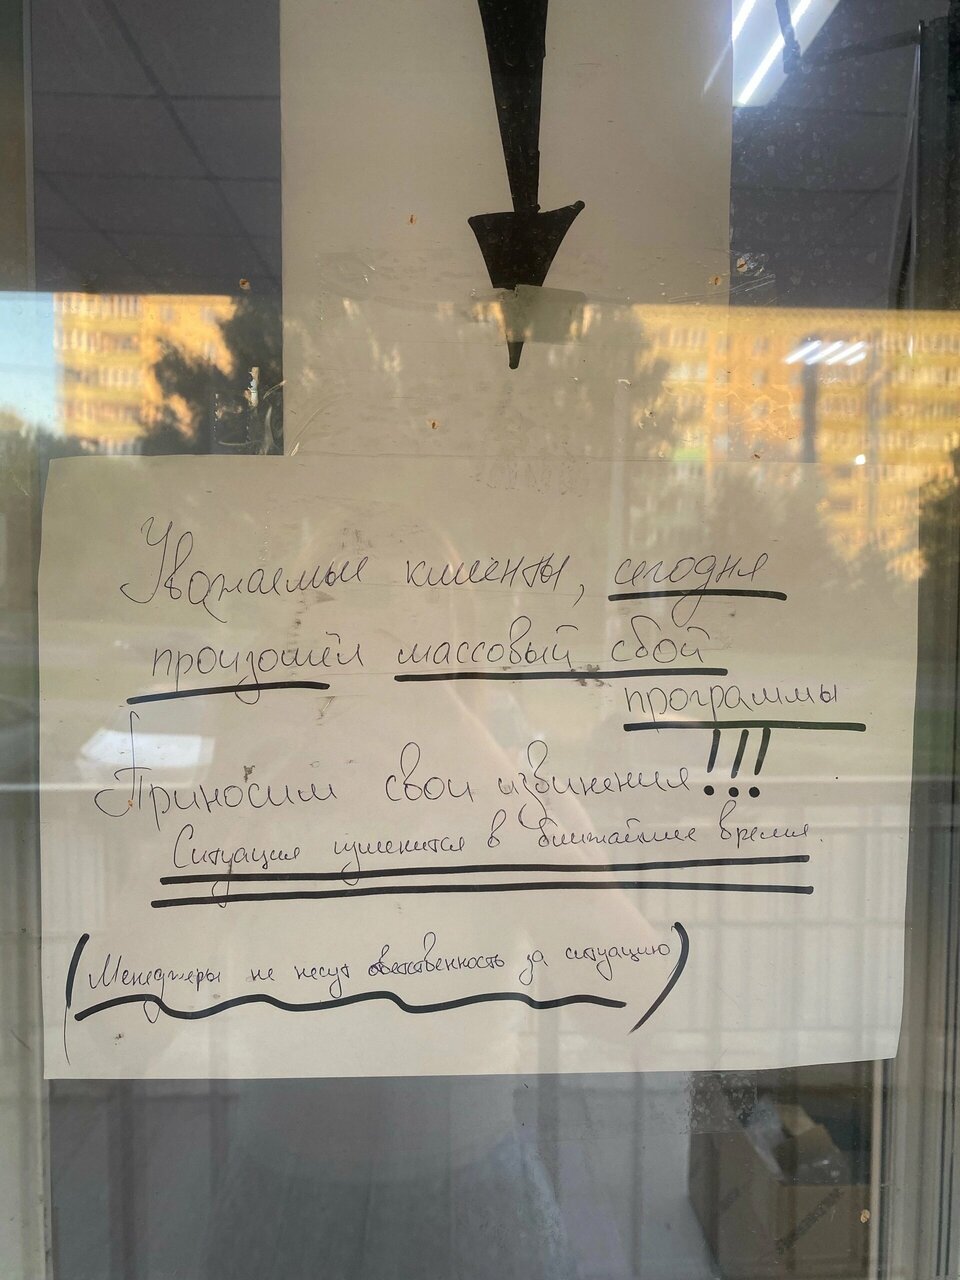 Уважаемые клиенты, сегодня
произошёл массовый сбой
программы
Приносим свои извинения!!!
Ситуация изменится в ближайшее время.
(Менеджеры не несут ответственность за ситуацию)